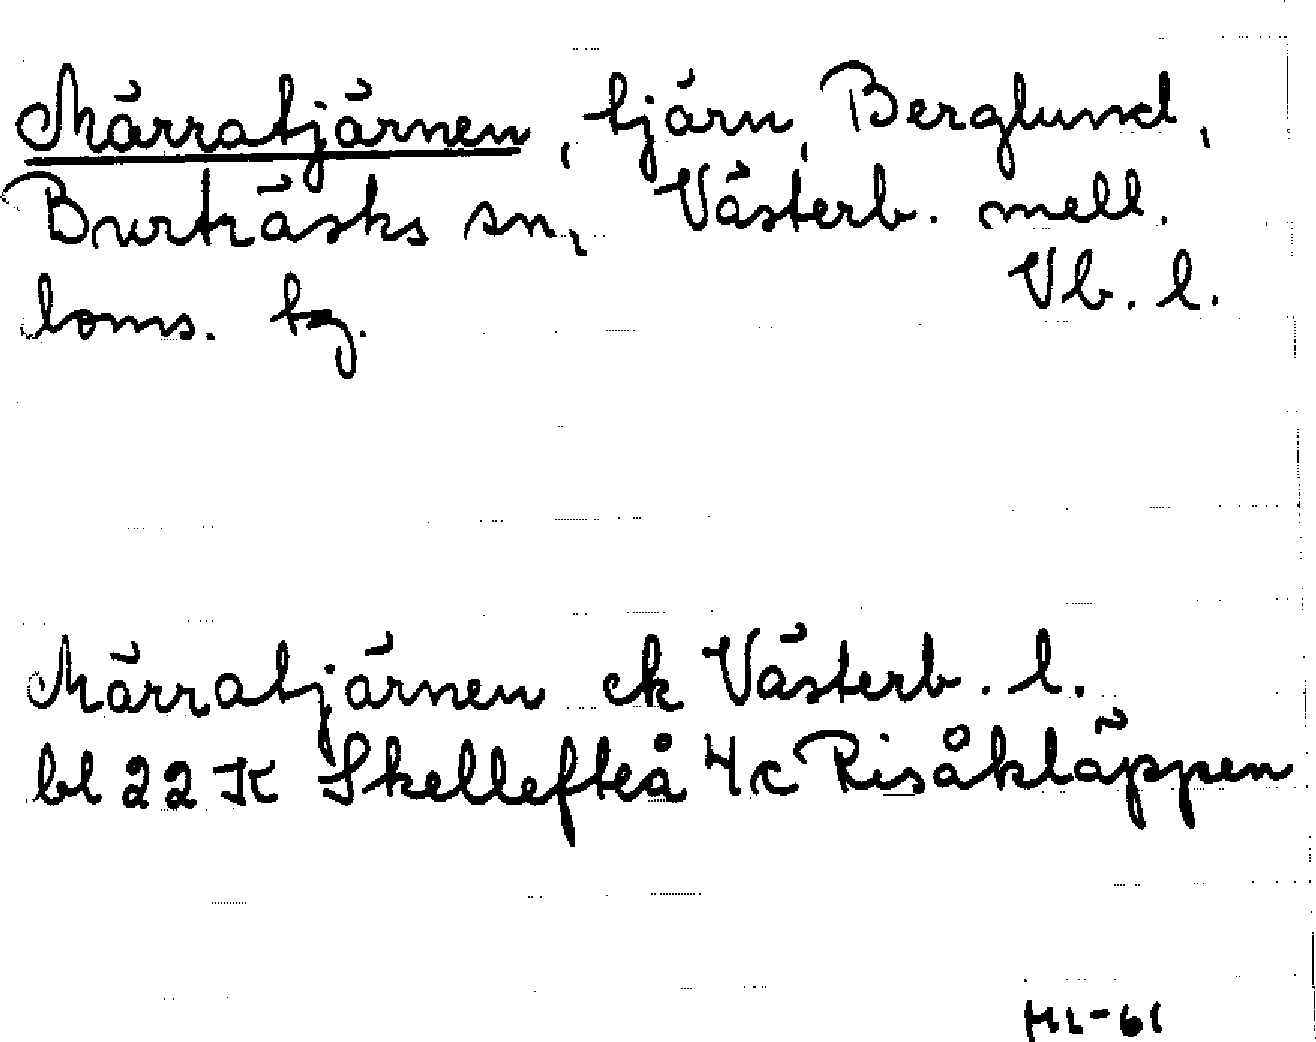 Märratjärnen, tjärn, Berglund,
Burträsks sn, Västerb. mell.
loms. tg. Vb. l.
Märratjärnen ek Västerb. l.
bl 22 K Skellefteå 4c Risåkläppen
HL-61